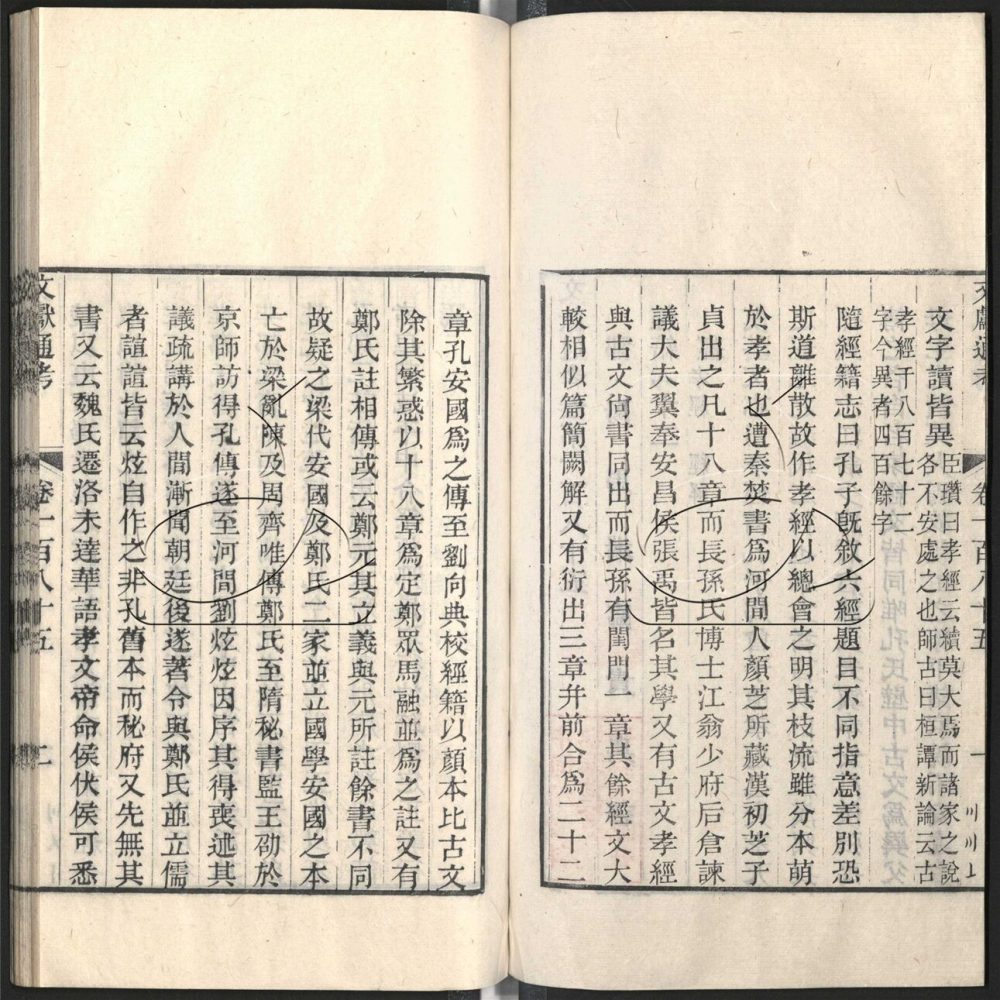 文獻通考 卷一百八十五 一
文字讀皆異臣瓚曰孝經云續莫大焉而諸家之說
各不安處之也師古曰桓譚新論云古
孝經千八百七十二
字今異者四百餘字
隨經籍志曰孔子旣敘六經題目不同指意差別恐
斯道離散故作孝經以總會之明其枝流雖分本萌
於孝者也遭秦焚書爲河間人顏芝所藏漢初芝子
貞出之凡十八章而長孫氏博士江翁少府后倉諫
議大夫翼奉安昌侯張禹皆名其學又有古文孝經
與古文尙書同出而長孫有閨門一章其餘經文大
較相似篇簡闕解又有衍出三章幷前合爲二十二
章孔安國爲之傳至劉向典校經籍以顏本比古文
除其繁惑以十八章爲定鄭眾馬融並爲之註又有
鄭氏註相傳或云鄭元其立義與元所註餘書不同
故疑之梁代安國及鄭氏二家並立國學安國之本
亡於梁亂陳及周齊唯傳鄭氏至隋秘書監王劭於
京師訪得孔傳遂至河間劉炫炫因序其得喪述其
議疏講於人間漸聞朝廷後遂著令與鄭氏並立儒
者諠諠皆云炫自作之非孔舊本而秘府又先無其
書又云魏氏遷洛未達華語孝文帝命侯伏侯可悉
文獻通考 卷一百八十五 二